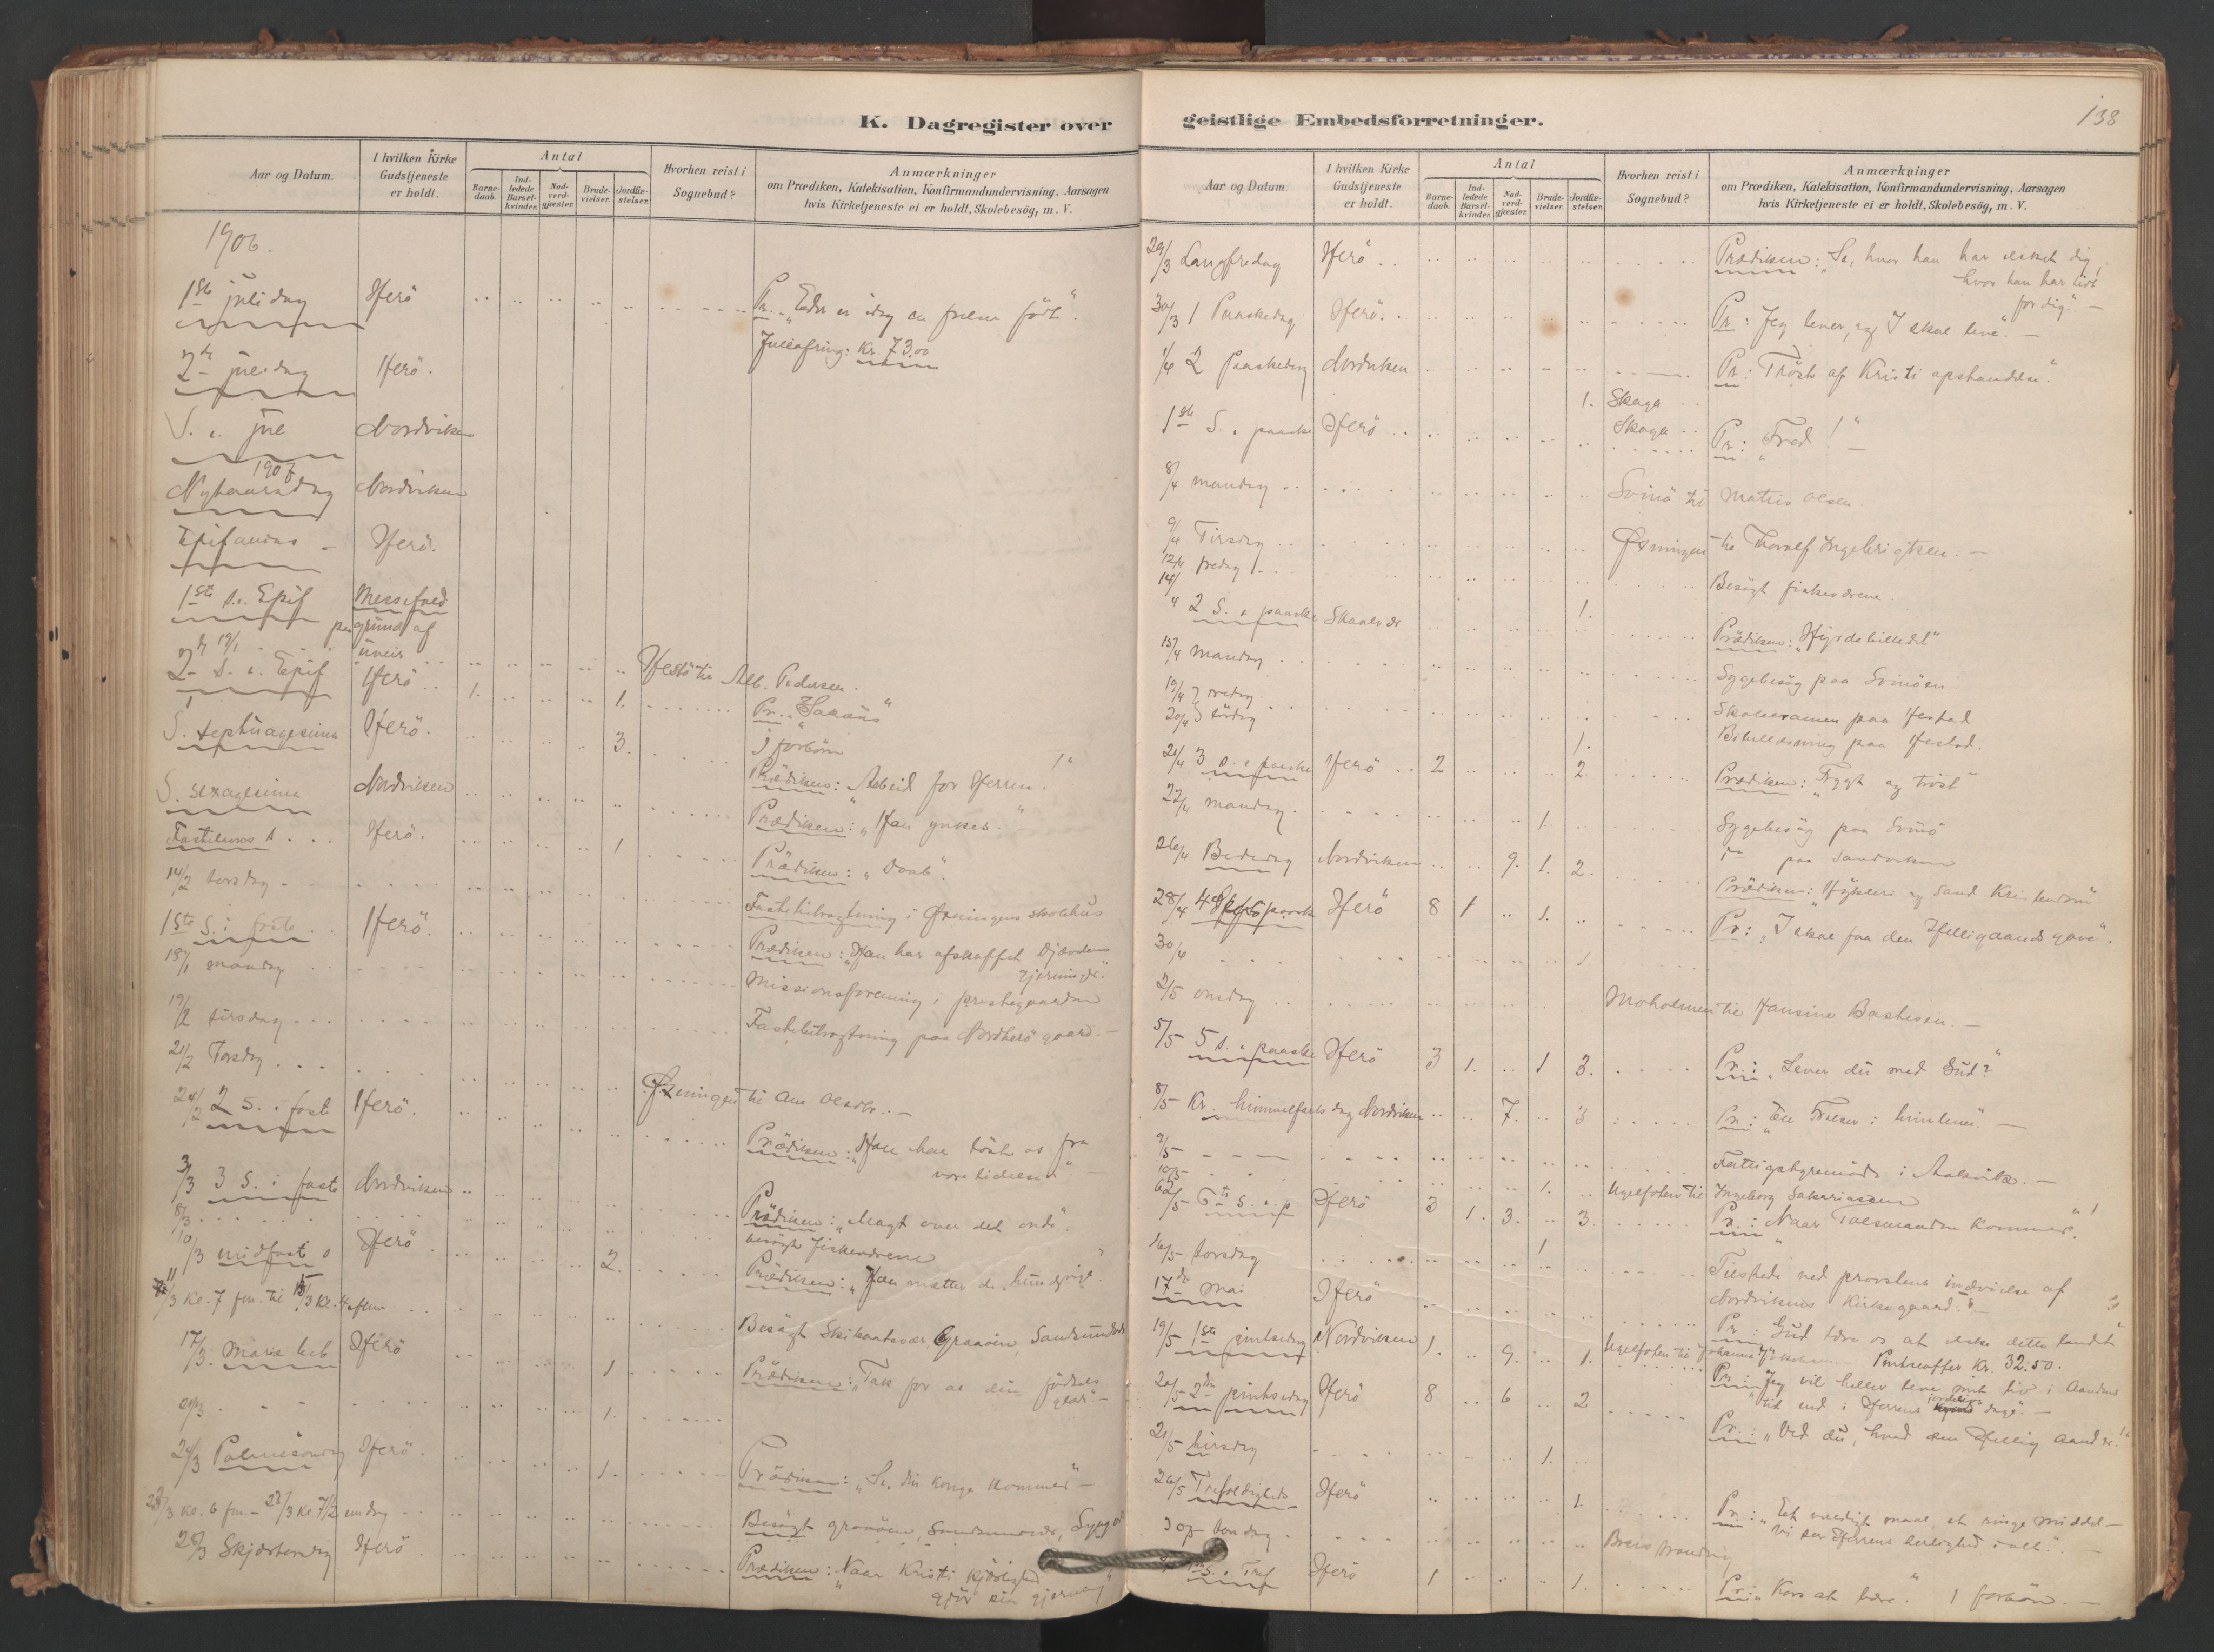 K. Dagregister over
Aar og Datum.
I hvilken Kirke Gudstjeneste er holdt.
Antal
Barnedaab.
Indledede Barselkvinder.
Nadverdgjæster.
Brudevielser.
Jordfæstelser.
Hvorhen reist i Sognebud?
Anmærkninger
om Prædiken, Katekisation, Konfirmandundervisning, Aarsagen
hvis Kirketjeneste ei er holdt, Skolebesög, m. V.
1906.
1ste juledag Herö Pr. "Eder er idag en frelser födt".
Juleofring: Kr. 73.00
2den juledag Herö.
S. i. jul Nordviken
1907
Nytaarsdag Nordviken
Epifanias Herö.
1ste s. e. Epif Messefald
paa grund af
uveir
19/1 Herö til Alb. Pedersen.
2- S. e. Epif Herö 1. 1. Pr.
S. septuagesima Herö. 3.
Prædiken: "Arbeid for Herren!"
S. sexagesima Nordviken Prædiken: "Han ynkes."
Fastelavns s. Herö. 1 Prædiken: "Daab".
14/2 torsdag Fastebetragtning i Öxningens skolehus
1ste S. i faste Herö. Prædiken: "Han har afskaffet Djævelens
gjerninger."
18/1 mandag Missionsforening i prestegaarden
19/2 tirsdag Fastebetragtning paa Nordherö gaard.
21/2 Torsdag Öxningen til Ane Olsdtr.
24/2 2 S. i fast Herö. Prædiken: "Han har löst os fra
vore lidelser"
3/3 3 S. i faste Nordviken Prædiken: "Magt over det onde".
8/3 besögt fiskeværene
10/3 midfaste s Herö 2. Prædiken: "Han mætter de hungrige"
11/3 Kl. 7 fm. til 15/3 Kl. 4 eftm Besögt Skibaatsvær, Graaöen, Sandsundvær
17/3 Mariæ beb Herö 1 Prædiken: "Tak for al din födsels
glæde"
20/3 1.
24/3 Palmesöndag Herö. 1. Prædiken: "Se, din konge kommer"
23/3 kl. 6 fm. - 27/3 kl 7 1/2 middag Besögt graaöen, Sandsundvær,
28/3 Skjærtorsdag Herö Prædiken: "Naar Kristi kjærlighed
gjör sin gjerning"
geistlige Embedsforretninger.
138
Aar og Datum
I hvilken Kirke Gudstjeneste er holdt.
Antal
Barnedaab.
Indledede Barselkvinder.
Nadverdgjæster.
Brudevielser.
Jordfæstelser.
Hvorhen reist i Sognebud?
Anmærkninger
om Prædiken, Katekisation, Konfirmandundervisning, Aarsagen
hvis Kirketjeneste ei er holdt, Skolebesög, m. V.
29/3 Langfredag Herö Prædiken: "Se, hvor han har elsket dig,
hvor han har lidt
for dig".
30/3 1 Paaskedag Herö. Pr: "Jeg lever, og I skal leve".
1/4 2 Paaskedag Nordviken Pr: "Tröst af Kristi opstandelse".
1. Skaga
1ste S. e paaske Herö Skaga Pr: "Fred!"
8/4 mandag Svinö til Mathis Olsen.
9/4 Tirsdag Öxningen til Thoralf Ingebrigtsen.
12/4 fredag Besögt fiskeværene.
14/4 2 S. e paaske Skaalvær 1. Prædiken: "Hyrdebilledet"
15/4 mandag Sygebesög paa Svinöen
19/4 fredag Skoleexamen paa Herstad
20/4 lördag Bibellæsning paa Herstad.
21/4 3 s. e paaske Herö 2 2. Prædiken: "Frygt og tröst"
22/4 mandag. 1. Sygebesög paa Svinö
paa Sandviken
26/4 Bededag Nordviken 9. 1. 2. Prædiken: "Hykleri og sand Kristendom"
28/4 4 S. e paaske Herö 8 1 1. Pr: "I skal faa den Helligaands gave".
30/4
2/5 onsdag Moholmen til Hansine Bastesen.
5/5 5 s. e paaske Herö 3 1. 1 3. Pr: "Lever du med Gud?"
8/5 Kr. himmelfartsdag Nordviken 7. 3 Pr: "En Frelser i himlen".
9/5 Fattigstyremöde i Aalvik.
10/5 1. Ugelfoten til Ingeborg Sakariassen
12/5 6te S. e. p Herö 3 1. 3. 3. Pr: "Naar Talsmanden kommer!"
16/5 torsdag 1 Tilstede ved provstens indvielse af
Nordvikens Kirkegaard.
17de mai Herö Pr: "Gud lære os at elske dette landet"
19/5 1ste pintsedag Nordviken 1. 9. 1. Ugelfoten til Johanna Pintseoffer Kr. 32.50.
Pr: "Jeg vil heller leve mit liv i Aanden
til end i Herrens jordeliv dage".
20/5 2den pintsedag Herö 8 6 2 Pr: "Ved du, hvad den Hellig Aand er!"
21/5 tirsdag 1.
26/5 Trefoldigheds Herö 1. Pr: "Et vældigt maal, et ringe middel -
vi ser Herrens herlighed i alt".
30/5 torsdag
S. e. Tref Herö 1 1. Pr: "Kors at bære". 1 forbön.